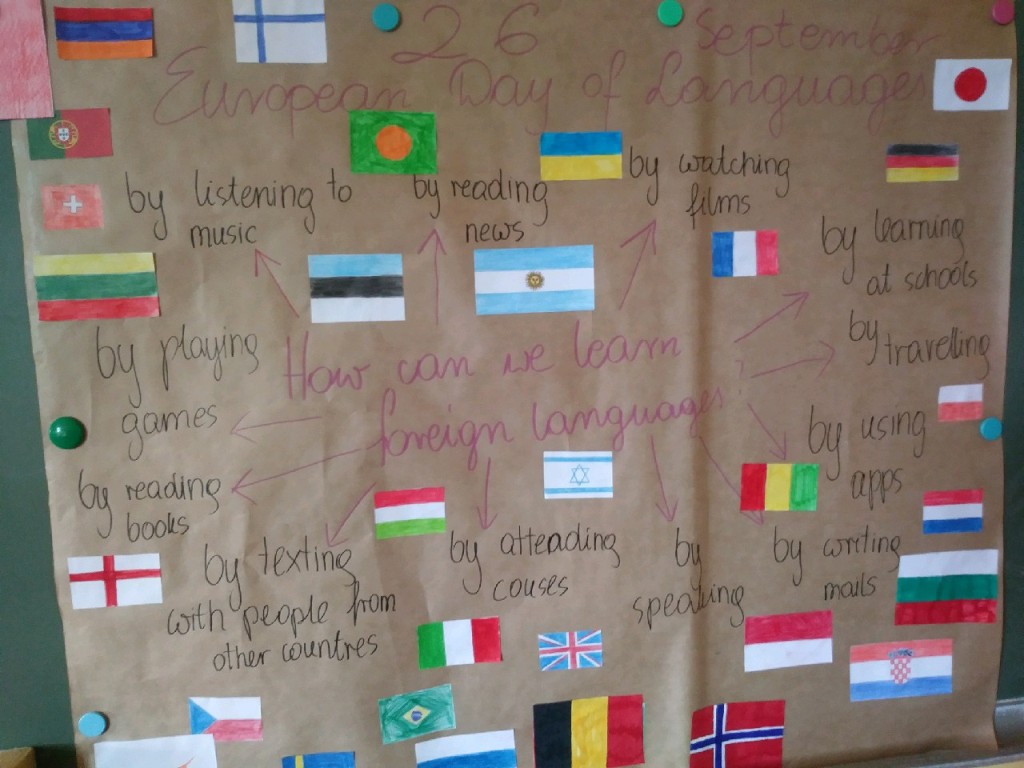 26 September
European Day of Languages
by listening to
music
by reading
news
by watching
films
by learning
at schools
by travelling
by playing
games
How can we learn
foreign languages?
by using
apps
by reading
books
by texting
with people from
other countres
by attending
couses
by
speaking
by writing
mails